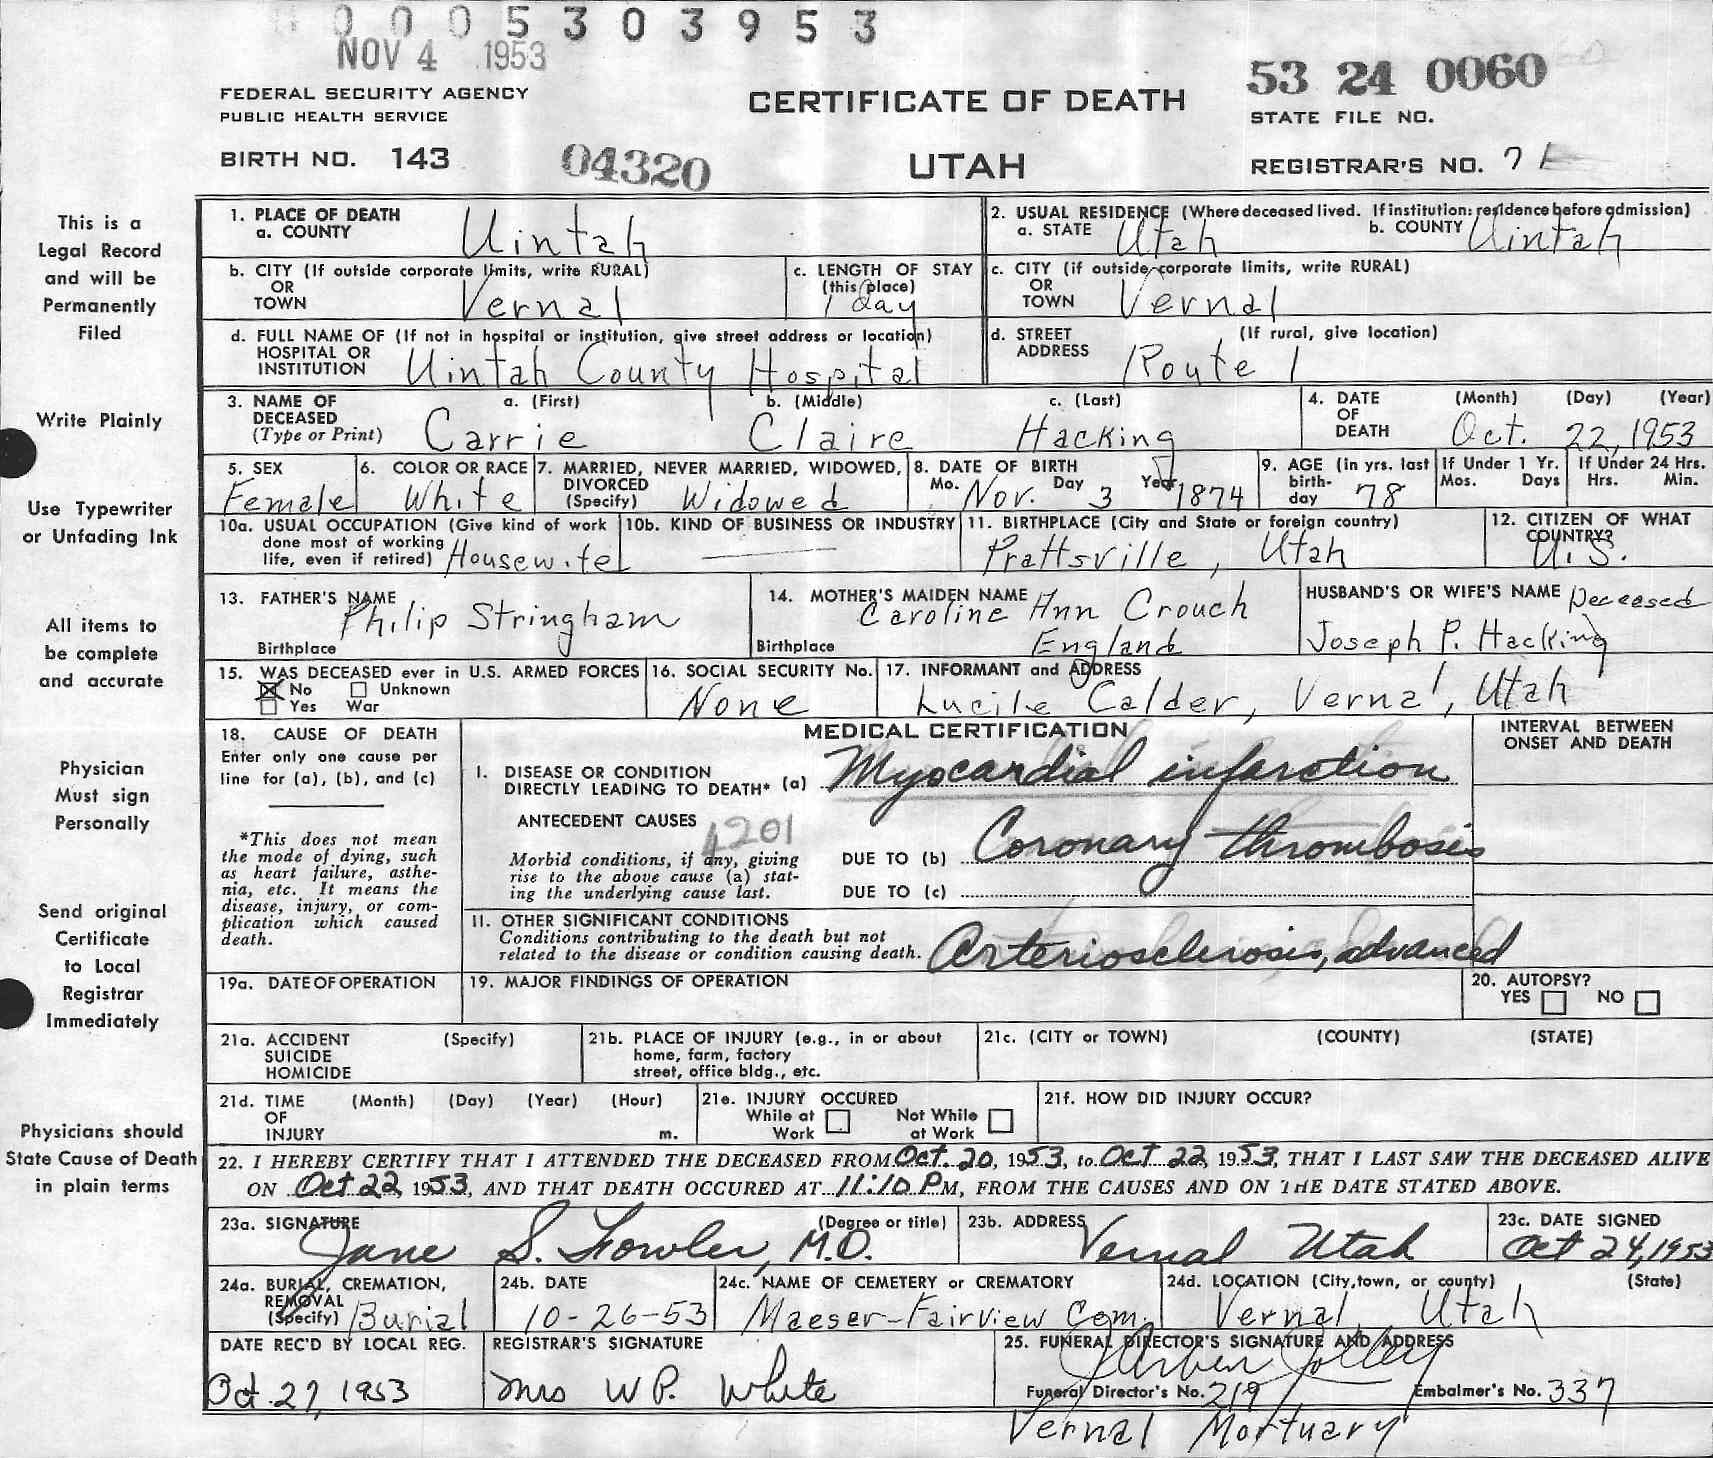 0005303953
NOV 4 1953
53 24 0060
FEDERAL SECURITY AGENCY
PUBLIC HEALTH SERVICE
CERTIFICATE OF DEATH
STATE FILE NO.
BIRTH NO. 143 04320 UTAH REGISTRAR'S NO. 71
This is a
Legal Record
and will be
Permanently
Filed
Write Plainly
Use Typewriter
or Unfading Ink
All items to
be complete
and accurate
Physician
Must sign
Personally
Send original
Certificate
to Local
Registrar
Immediately
Physicians should
State Cause of Death
in plain terms
1. PLACE OF DEATH
a. COUNTY Uintah
2. USUAL RESIDENCE (Where deceased lived. If institution: residence before admission)
a. STATE Utah b. COUNTY Uintah
b. CITY (If outside corporate limits, write RURAL)
OR
TOWN Vernal
c. LENGTH OF STAY
(this place)
1 day
c. CITY (if outside corporate limits, write RURAL)
OR
TOWN Vernal
d. FULL NAME OF (If not in hospital or institution, give street address or location)
HOSPITAL OR
INSTITUTION Uintah County Hospital
d. STREET (If rural, give location)
ADDRESS Route 1
3. NAME OF a. (First) b. (Middle) c. (Last)
DECEASED
(Type or Print) Carrie Claire Hacking
4. DATE (Month) (Day) (Year)
OF
DEATH Oct. 22, 1953
5. SEX
Female
6. COLOR OR RACE
White
7. MARRIED, NEVER MARRIED, WIDOWED,
DIVORCED
(Specify) Widowed
8. DATE OF BIRTH
Mo. Nov. Day 3 Year 1874
9. AGE (in yrs. last
birth-
day 78
If Under 1 Yr.
Mos. Days
If Under 24 Hrs.
Hrs. Min.
10a. USUAL OCCUPATION (Give kind of work
done most of working
life, even if retired) Housewife
10b. KIND OF BUSINESS OR INDUSTRY
11. BIRTHPLACE (City and State or foreign country)
Prattsville, Utah
12. CITIZEN OF WHAT
COUNTRY?
U.S.
13. FATHER'S NAME
Philip Stringham
Birthplace
14. MOTHER'S MAIDEN NAME
Caroline Ann Crouch
Birthplace England
HUSBAND'S OR WIFE'S NAME Deceased
Joseph P. Hacking
15. WAS DECEASED ever in U.S. ARMED FORCES
No Unknown
Yes War
16. SOCIAL SECURITY No.
None
17. INFORMANT and ADDRESS
Lucile Calder, Vernal, Utah
18. CAUSE OF DEATH
Enter only one cause per
line for (a), (b), and (c)
*This does not mean
the mode of dying, such
as heart failure, asthe-
nia, etc. It means the
disease, injury, or com-
plication which caused
death.
MEDICAL CERTIFICATION
INTERVAL BETWEEN
ONSET AND DEATH
I. DISEASE OR CONDITION
DIRECTLY LEADING TO DEATH* (a) Myocardial infarction
ANTECEDENT CAUSES 4201
Morbid conditions, if any, giving
rise to the above cause (a) stat-
ing the underlying cause last.
DUE TO (b) Coronary thrombosis
DUE TO (c)
II. OTHER SIGNIFICANT CONDITIONS
Conditions contributing to the death but not
related to the disease or condition causing death. Arteriosclerosis, advanced
19a. DATE OF OPERATION
19. MAJOR FINDINGS OF OPERATION
20. AUTOPSY?
YES NO
21a. ACCIDENT (Specify)
SUICIDE
HOMICIDE
21b. PLACE OF INJURY (e.g., in or about
home, farm, factory
street, office bldg., etc.
21c. (CITY or TOWN) (COUNTY) (STATE)
21d. TIME (Month) (Day) (Year) (Hour)
OF
INJURY m.
21e. INJURY OCCURED
While at Not While
Work at Work
21f. HOW DID INJURY OCCUR?
22. I HEREBY CERTIFY THAT I ATTENDED THE DECEASED FROM Oct. 20, 1953, to Oct 22, 1953, THAT I LAST SAW THE DECEASED ALIVE
ON Oct 22, 1953, AND THAT DEATH OCCURED AT 11:10 P M, FROM THE CAUSES AND ON THE DATE STATED ABOVE.
23a. SIGNATURE (Degree or title)
Jane S. Fowler, M.D.
23b. ADDRESS
Vernal Utah
23c. DATE SIGNED
Oct 24, 1953
24a. BURIAL, CREMATION,
REMOVAL
(Specify) Burial
24b. DATE
10-26-53
24c. NAME OF CEMETERY or CREMATORY
Maeser-Fairview Cem.
24d. LOCATION (City, town, or county) (State)
Vernal, Utah
DATE REC'D BY LOCAL REG.
Oct. 27, 1953
REGISTRAR'S SIGNATURE
Mrs W P. White
25. FUNERAL DIRECTOR'S SIGNATURE AND ADDRESS
Jolley
Funeral Director's No. 219 Embalmer's No. 337
Vernal Mortuary